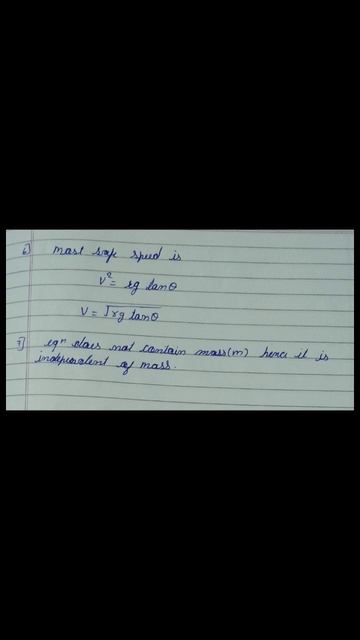 6] Most safe speed is
v² = rg tanθ
v = √rg tanθ
7] eqⁿ does not contain mass(m) hence it is
independent of mass.